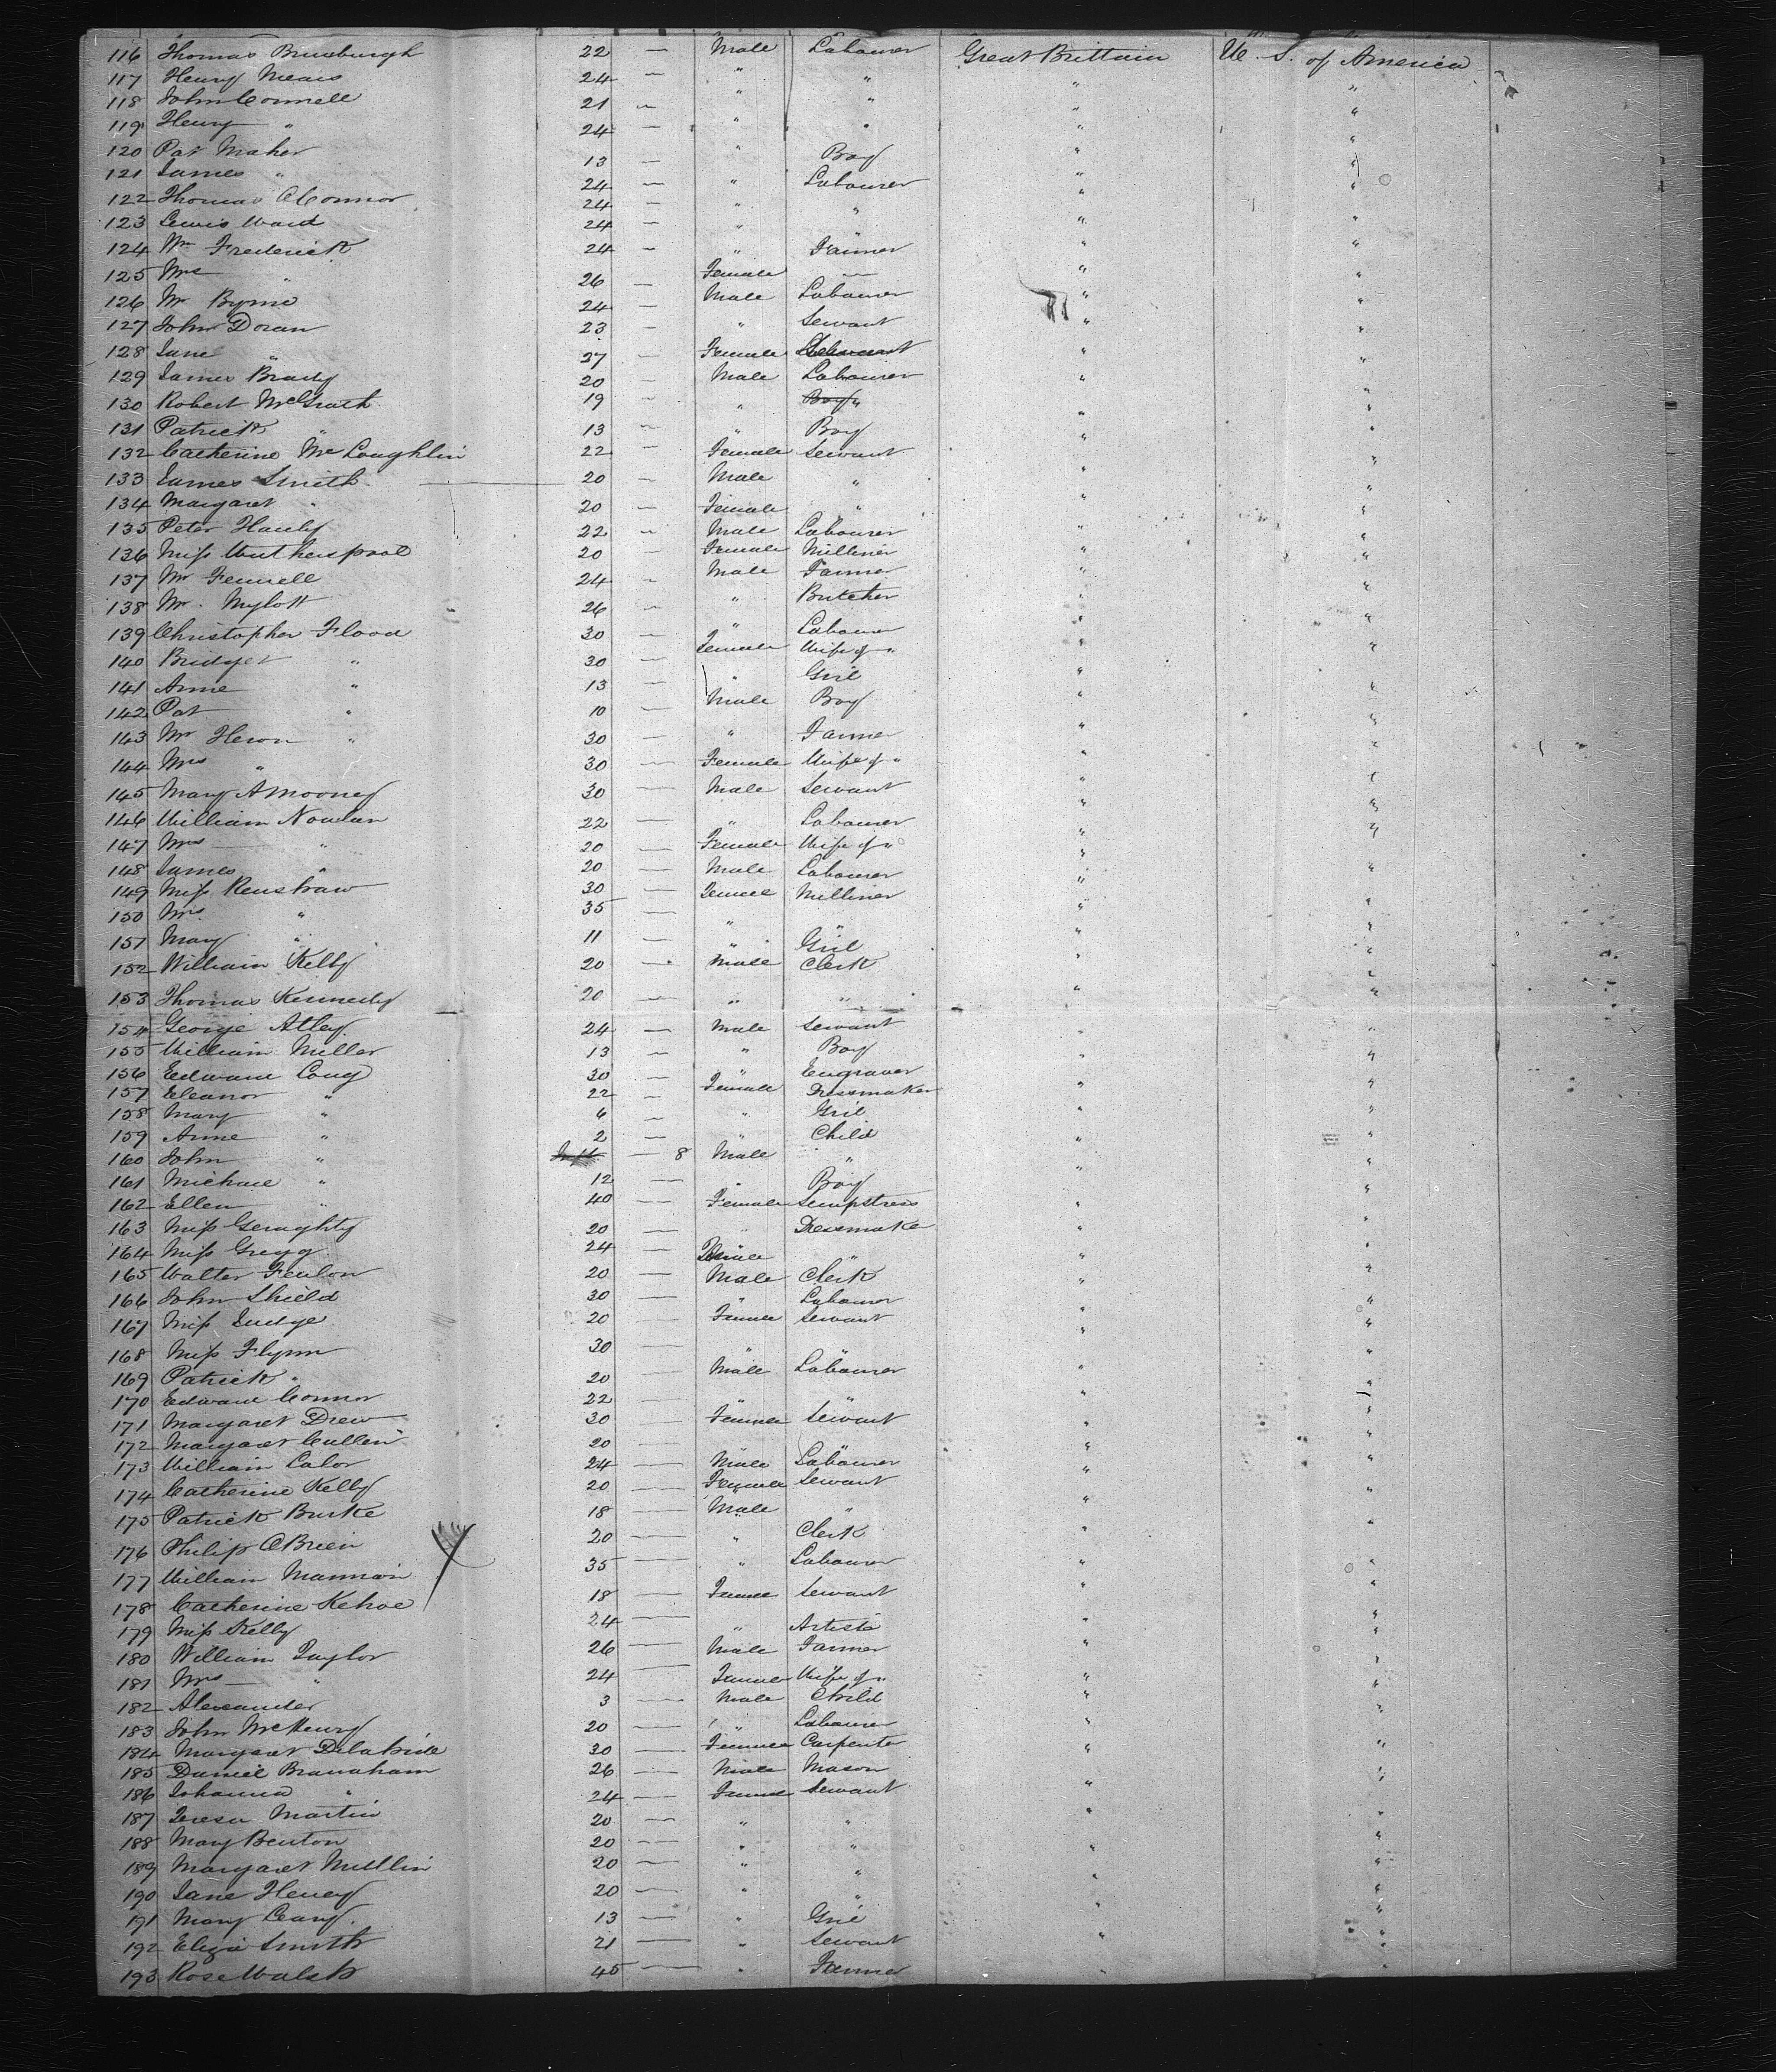 116 Thomas 22 — Male Labourer Great Brittain U. S. of America
117 Henry Mears 24 — " " " "
118 John Connell 21 — " " " "
119 Henry " 24 — " " " "
120 Pat Maher 13 — " Boy " "
121 James " 24 — " Labourer " "
122 Thomas O'Connor 24 — " " " "
123 Lewis Ward 24 — " " " "
124 Wm Frederick 24 — " Farmer " "
125 Mrs " 26 — Female — " "
126 Mr Byrne 24 — Male Labourer " "
127 John Doran 23 — " Servant " "
128 Jane " 27 — Female Servant " "
129 James Brady 20 — Male Labourer " "
130 Robert McGrath 19 — " Boy " " "
131 Patrick " 13 — " Boy " "
132 Catherine McLoughlin 22 — Female Servant " "
133 James Smith 20 — Male " " "
134 Margaret " 20 — Female " " "
135 Peter Hanly 22 — Male Labourer " "
136 Miss 20 — Female Milliner " "
137 Mr Fennell 24 — Male Farmer " "
138 Mr. Mylott 26 — " Butcher " "
139 Christopher Flood 30 — " Labourer " "
140 Bridget " 30 — Female Wife of " " "
141 Anne " 13 — " Girl " "
142 Pat " 10 — Male Boy " "
143 Mr Heron " 30 — " Farmer " "
144 Mrs " 30 — Female Wife of " " "
145 Mary A Mooney 30 — Male Servant " "
146 William Nowlan 22 — " Labourer " "
147 Mrs " 20 — Female Wife of " " "
148 James " 20 — Male Labourer " "
149 Miss Renshaw 30 — Female Milliner " "
150 Mrs " 35 — " " " "
151 Mary " 11 — " Girl " "
152 William Kelly 20 — Male Clerk " "
153 Thomas Kennedy 20 — " " " "
154 George Atley 24 — Male Servant " "
155 William Miller 13 — " Boy " "
156 Edward Coug 30 — " Engraver " "
157 Eleanor " 22 — Female Dressmaker " "
158 Mary " 6 — " Girl " "
159 Anne " 2 — " Child " "
160 John " — 8 Male " " "
161 Michael " 12 — " Boy " "
162 Ellen " 40 — Female Sempstress " "
163 Miss Geraghty 20 — " Dressmake " "
164 Miss Gregg 24 — Female " " "
165 Walter Fenlon 20 — Male Clerk " "
166 John Shield 30 — " Labourer " "
167 Miss Judge 20 — Female Servant " "
168 Miss Flynn 30 — " " " "
169 Patrick " 20 — Male Labourer " "
170 Edward Connor 22 — " " " "
171 Margaret Drew 30 — Female Servant " "
172 Margaret Cullen 20 — " " " "
173 William Lalor 24 — Male Labourer " "
174 Catherine Kelly 20 — Female Servant " "
175 Patrick Burke 18 — Male " " "
176 Philip O'Brien 20 — " Clerk " "
177 William Mannion 35 — " Labourer " "
178 Catherine Kehoe 18 — Female Servant " "
179 Miss Kelly 24 — " Artiste " "
180 William Taylor 26 — Male Farmer " "
181 Mrs " 24 — Female Wife of " " "
182 Alexander 3 — Male Child " "
183 John McHenry 20 — " Labourer " "
184 Margaret 30 — Female Carpenter " "
185 Daniel 26 — Male Mason " "
186 Johanna " 24 — Female Servant " "
187 Teresa Martin 20 — " " " "
188 Mary Benton 20 — " " " "
189 Margaret Mullin 20 — " " " "
190 Jane Heney 20 — " " " "
191 Mary Leary 13 — " Girl " "
192 Eliza Smith 21 — " Servant " "
193 Rose Walsh 45 — " Farmer " "